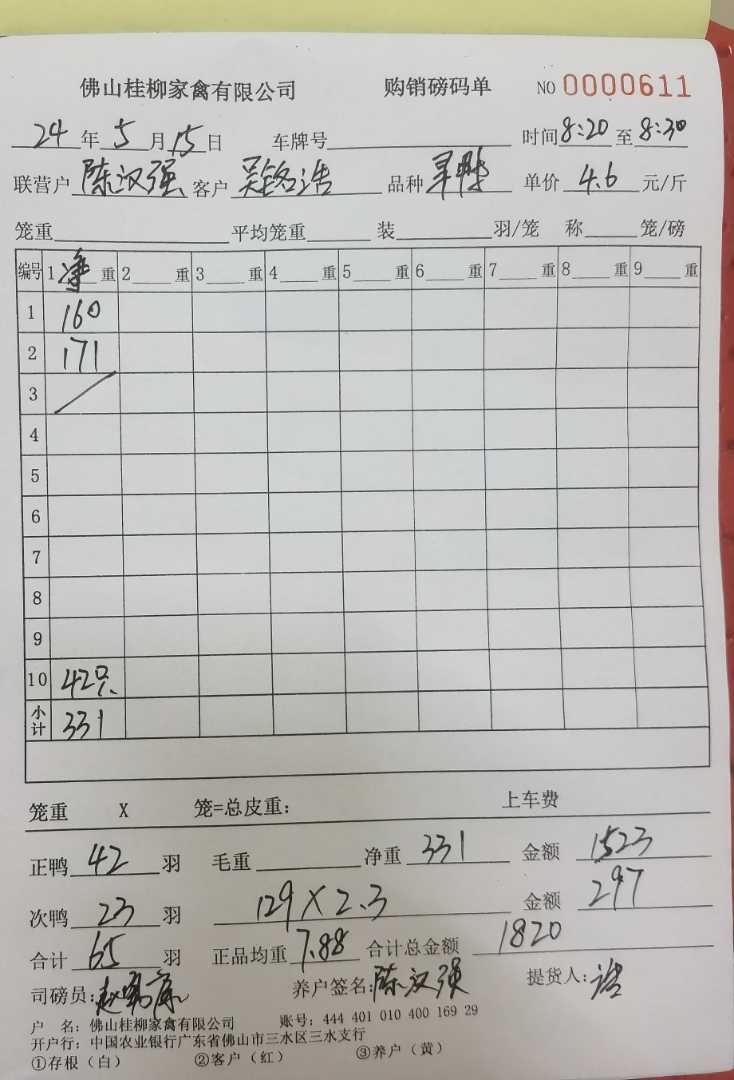 佛山桂柳家禽有限公司 购销磅码单 NO 0000611
24年5月15日 车牌号 时间8:20至8:30
联营户陈汉强 客户吴铭浩 品种 单价4.6元/斤
笼重 平均笼重 装 羽/笼 称 笼/磅
编号 1净重 2 重 3 重 4 重 5 重 6 重 7 重 8 重 9 重
1 160
2 171
3 /
4
5
6
7
8
9
10 42只
小计 331
笼重 X 笼=总皮重: 上车费
正鸭42羽 毛重 净重331 金额1523
次鸭23羽 129X2.3 金额297
合计65羽 正品均重7.88 合计总金额1820
司磅员:赵 养户签名:陈汉强 提货人:浩
户 名: 佛山桂柳家禽有限公司 账号: 444 401 010 400 169 29
开户行: 中国农业银行广东省佛山市三水区三水支行
①存根(白) ②客户(红) ③养户(黄)